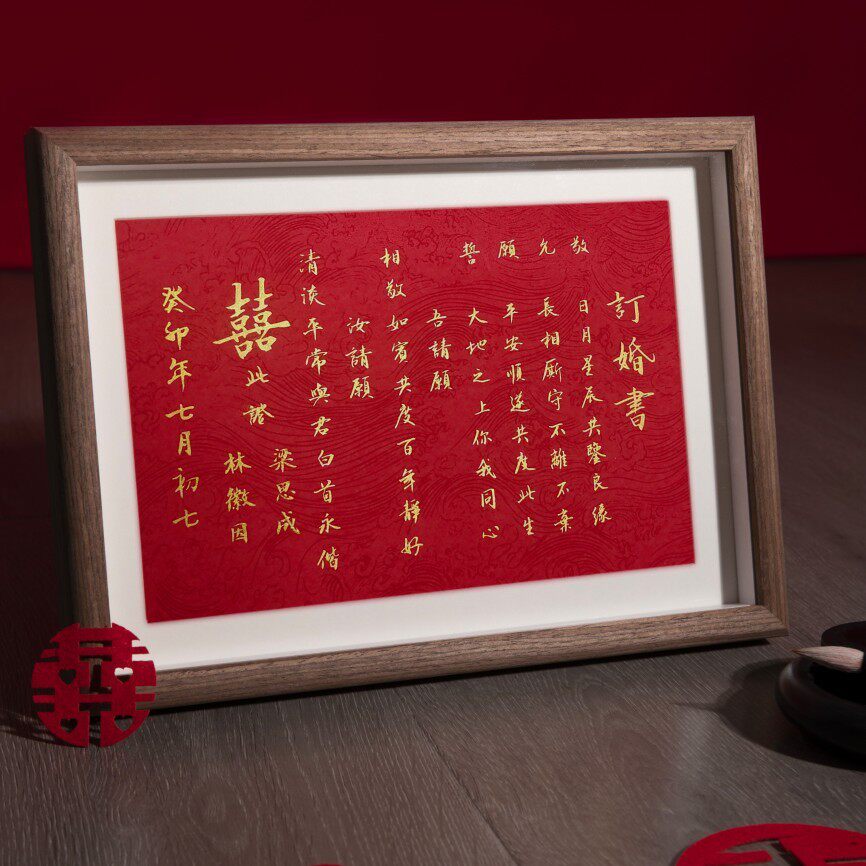 訂婚書
敬 日月星辰共鑒良緣
允 長相厮守不離不棄
願 平安順遂共度此生
誓 大地之上你我同心
吾請願
相敬如賓共度百年靜好
汝請願
清淡平常與君白首永偕
梁思成
囍此證 林徽因
癸卯年七月初七